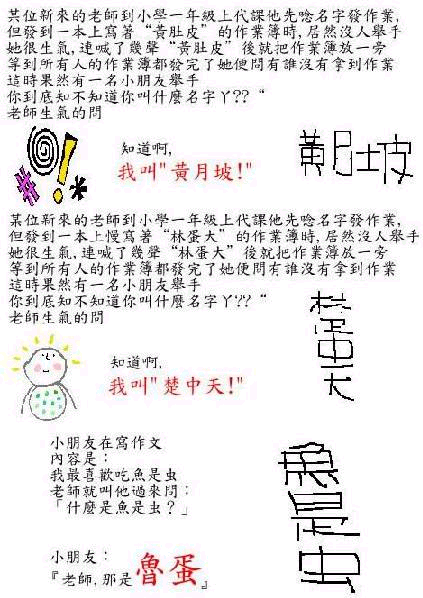 某位新來的老師到小學一年級上代課他先唸名字發作業,
但發到一本上寫著“黃肚皮”的作業簿時,居然沒人舉手
她很生氣,連喊了幾聲“黃肚皮”後就把作業簿放一旁
等到所有人的作業簿都發完了她便問有誰沒有拿到作業
這時果然有一名小朋友舉手
你到底知不知道你叫什麼名字丫??“
老師生氣的問
知道啊,
我叫"黃月坡!"
黃月土皮
某位新來的老師到小學一年級上代課他先唸名字發作業,
但發到一本上慢寫著“林蛋大”的作業簿時,居然沒人舉手
她很生氣,連喊了幾聲“林蛋大”後就把作業簿放一旁
等到所有人的作業簿都發完了她便問有誰沒有拿到作業
這時果然有一名小朋友舉手
你到底知不知道你叫什麼名字丫??“
老師生氣的問
知道啊,
我叫"楚中天!"
小朋友在寫作文
內容是：
我最喜歡吃魚是虫
老師就叫他過來問：
「什麼是魚是虫？」
小朋友：
『老師,那是魯蛋』